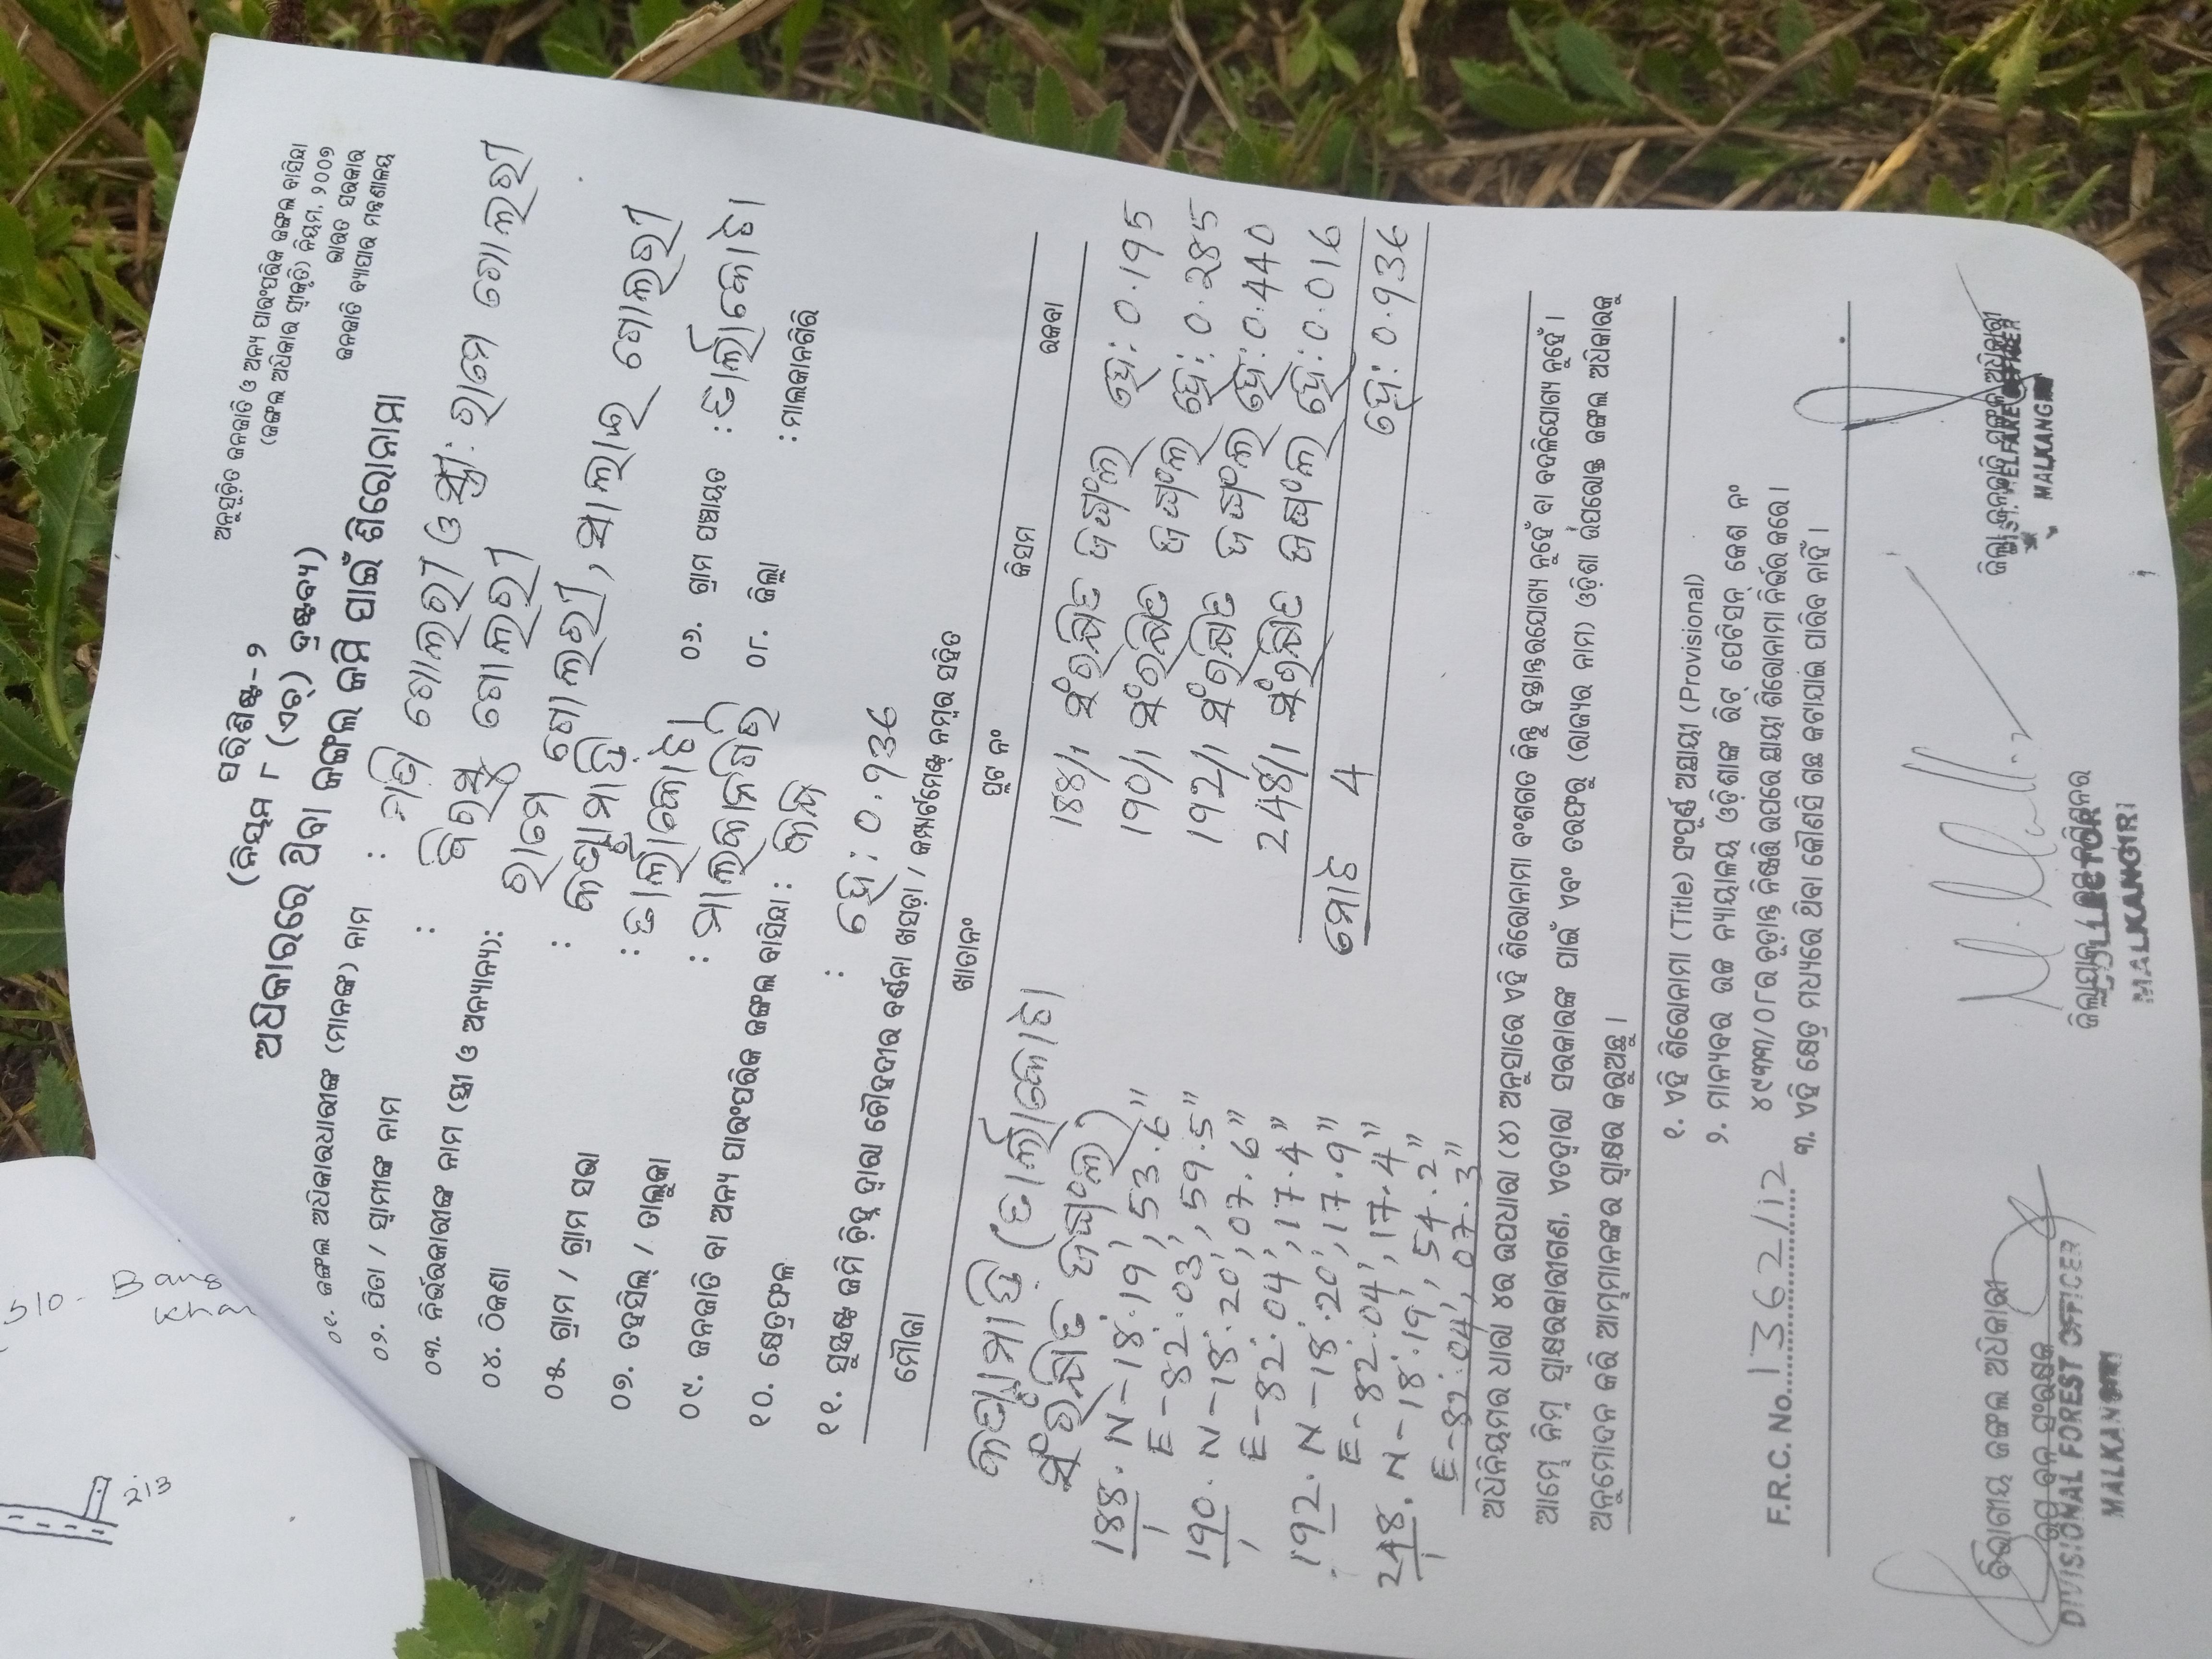 ଅନୁସୂଚିତ ଜନଜାତି ଓ ଅନ୍ୟ ପାରଂପରିକ ଜଙ୍ଗଲ ବାସିନ୍ଦା
(ଜଙ୍ଗଲ ଅଧିକାର ସ୍ୱୀକୃତି) ନିୟମ, ୨୦୦୭
ଭାରତ ସରକାର
ଜନଜାତି ବ୍ୟାପାର ମନ୍ତ୍ରଣାଳୟ
ପରିଶିଷ୍ଟ-୨
(ନିୟମ ୮ (ଏଚ୍) ଦ୍ରଷ୍ଟବ୍ୟ)
ଅଧିକାରରେ ଥିବା ଜଙ୍ଗଲ ଜମି ପାଇଁ ଶିରୋନାମା
୦୧. ଜଙ୍ଗଲ ଅଧିକାରଧାରୀଙ୍କ (ମାନଙ୍କ) ନାମ : ଗୋଲରୀ ଓ ସ୍ତ୍ରୀ: ରାମେ ଗୋଲରୀ
୦୨. ପିତା / ସ୍ୱାମୀଙ୍କ ନାମ : ଗୋଲରୀ
୦୩. ନିର୍ଭରକାରୀଙ୍କ ନାମ (ସ୍ତ୍ରୀ ଓ ଅନ୍ୟାନ୍ୟ): ରାମେ ଗୋଲରୀ, ଗୋଲରୀ
୦୪. ଠିକଣା :
୦୫. ଗ୍ରାମ / ଗ୍ରାମ ସଭା : ୦୬. ଗ୍ରାମ ପଞ୍ଚାୟତ :
୦୭. ତହସିଲ୍ / ତାଲୁକା : ମାଲକାନଗିରି ୦୮. ଜିଲ୍ଲା : ମାଲକାନଗିରି
୦୯. ଜନଜାତି ବା ଅନ୍ୟ ପାରଂପରିକ ଜଙ୍ଗଲ ବାସିନ୍ଦା :
୧୦. କ୍ଷେତ୍ରଫଳ : ହେ: 0.936
୧୧. ସୁସ୍ପଷ୍ଟ ଜମି ଚିହ୍ନ ଦ୍ୱାରା ଚୌହଦୀର ବର୍ଣ୍ଣନା ଖସଡ଼ା / କମ୍ପାର୍ଟମେଣ୍ଟ ନମ୍ବର ସହିତ
ମୌଜା ଖାତା ନଂ ପ୍ଲଟ ନଂ କିସମ ରକବା
ସଂରକ୍ଷିତ ଜଙ୍ଗଲ)
188/1 ସଂରକ୍ଷିତ ଜଙ୍ଗଲ ହେ: 0.195
190/1 ସଂରକ୍ଷିତ ଜଙ୍ଗଲ ହେ: 0.285
192/1 ସଂରକ୍ଷିତ ଜଙ୍ଗଲ ହେ: 0.440
248/1 ସଂରକ୍ଷିତ ଜଙ୍ଗଲ ହେ: 0.016
ମୋଟ 4 ହେ: 0.936
188/1. N-18°.19', 53.6"
E-82°.03', 59.5"
190/1. N-18°.20', 07.6"
E-82°.04', 17.4"
192/1. N-18°.20', 17.9"
E-82°.04', 17.4"
248/1. N-18°.19', 54.2"
E-82°.04', 07.3"
ଅଧିନିୟମର ଧାରା ୪ର ଉପଧାରା (୪) ଅନୁସାରେ ଏହି ଶିରୋନାମା ବଂଶଗତ କିନ୍ତୁ ହସ୍ତାନ୍ତରଯୋଗ୍ୟ ନୁହେଁ ବା ବଦଳିଯୋଗ୍ୟ ନୁହେଁ ।
ଆମ୍ଭେ ନିମ୍ନ ସ୍ୱାକ୍ଷରକାରୀଗଣ, ଏତଦ୍ୱାରା ସରକାରଙ୍କ ପାଇଁ ଏବଂ ତରଫରୁ (ରାଜ୍ୟର ନାମ) ଓଡ଼ିଶା ଉପରୋକ୍ତ ଜଙ୍ଗଲ ଅଧିକାରକୁ
ଅନୁମୋଦନ କରି ଆମ୍ଭମାନଙ୍କର ସ୍ୱାକ୍ଷର କରୁଅଛୁ ।
୧. ଏହି ଶିରୋନାମା (Title) ସଂପୂର୍ଣ୍ଣ ଅସ୍ଥାୟୀ (Provisional)
୨. ମାନ୍ୟବର ଉଚ୍ଚ ନ୍ୟାୟାଳୟ ଓଡ଼ିଶାଙ୍କ ରିଟ୍ ପେଟିସନ୍ କେଶ ନଂ
୪୯୩୩/୦୮ର ଚୂଡ଼ାନ୍ତ ନିଷ୍ପତ୍ତି ଉପରେ ସ୍ଥାୟୀ ଶିରୋନାମା ନିର୍ଭର କରେ ।
F.R.C. No. 1362/12
୩. ଏହି କ୍ଷେତ୍ର ମଧ୍ୟରେ ଥିବା କୌଣସି ଗଛ କଟାଯାଇ ପାରିବ ନାହିଁ ।
ବିଭାଗୀୟ ଜଙ୍ଗଲ ଅଧିକାରୀ
DIVISIONAL FOREST OFFICER
MALKANGIRI
COLLECTOR
MALKANGIRI
ଜିଲ୍ଲା ଜନଜାତି ମଙ୍ଗଳ ଅଧିକାରୀ
DIST. WELFARE OFFICER
MALKANG
510- Bang
Khan
213